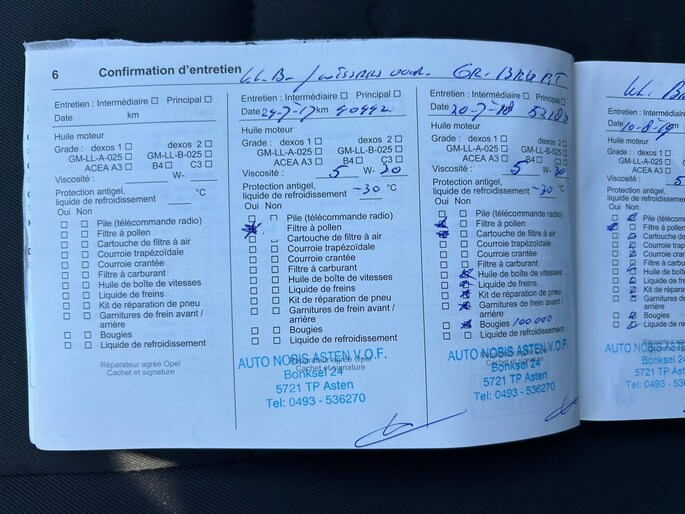 6 Confirmation d'entretien
Entretien : Intermédiaire Principal
Date km
Huile moteur
Grade : dexos 1 dexos 2
GM-LL-A-025 GM-LL-B-025
ACEA A3 B4 C3
Viscosité : W-
Protection antigel,
liquide de refroidissement °C
Oui Non
Pile (télécommande radio)
Filtre à pollen
Cartouche de filtre à air
Courroie trapézoïdale
Courroie crantée
Filtre à carburant
Huile de boîte de vitesses
Liquide de freins
Kit de réparation de pneu
Garnitures de frein avant /
arrière
Bougies
Liquide de refroidissement
Réparateur agréé Opel
Cachet et signature
Entretien : Intermédiaire Principal
Date 24-7-17 km 40442
Huile moteur
Grade : dexos 1 dexos 2
GM-LL-A-025 GM-LL-B-025
ACEA A3 B4 C3
Viscosité : 5 W- 30
Protection antigel,
liquide de refroidissement -30 °C
Oui Non
Pile (télécommande radio)
Filtre à pollen
Cartouche de filtre à air
Courroie trapézoïdale
Courroie crantée
Filtre à carburant
Huile de boîte de vitesses
Liquide de freins
Kit de réparation de pneu
Garnitures de frein avant /
arrière
Bougies
Liquide de refroidissement
AUTO NOBIS ASTEN V.O.F.
Réparateur agréé Opel
Cachet et signature
Bonksel 24
5721 TP Asten
Tel: 0493 - 536270
GR. BEURT
Entretien : Intermédiaire Principal
Date 20-7-18
Huile moteur
Grade : dexos 1 dexos 2
GM-LL-A-025 GM-LL-B-025
ACEA A3 B4 C3
Viscosité : 5 W- 30
Protection antigel,
liquide de refroidissement -30 °C
Oui Non
Pile (télécommande radio)
Filtre à pollen
Cartouche de filtre à air
Courroie trapézoïdale
Courroie crantée
Filtre à carburant
Huile de boîte de vitesses
Liquide de freins
Kit de réparation de pneu
Garnitures de frein avant /
arrière
Bougies 100000
Liquide de refroidissement
AUTO NOBIS ASTEN V.O.F.
Réparateur agréé Opel
Cachet et signature
Bonksel 24
5721 TP Asten
Tel: 0493 - 536270
Entretien : Intermédiaire
Date 10-8-19
Huile moteur
Grade : dexos 1
GM-LL-A-025
ACEA A3
Viscosité :
Protection antigel,
liquide de refroidissement
Oui Non
Pile (télécom
Filtre à pollen
Cartouche de
Courroie trap
Courroie cran
Filtre à carbu
Huile de boîte
Liquide de fre
Kit de réparat
Garnitures de
arrière
Bougies
Liquide de re
AUTO NOBIS AS
Bonksel
5721 TP A
Tel: 0493 -